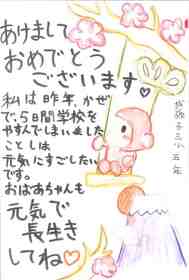 あけまして
おめでとう
ございます♡
私は昨年、かぜ
で、5日間学校を
やすんでしまいました
ことしは
元気にすごしたい
です。
おばあちゃんも
元気で
長生き
してね♡
子三小 五年